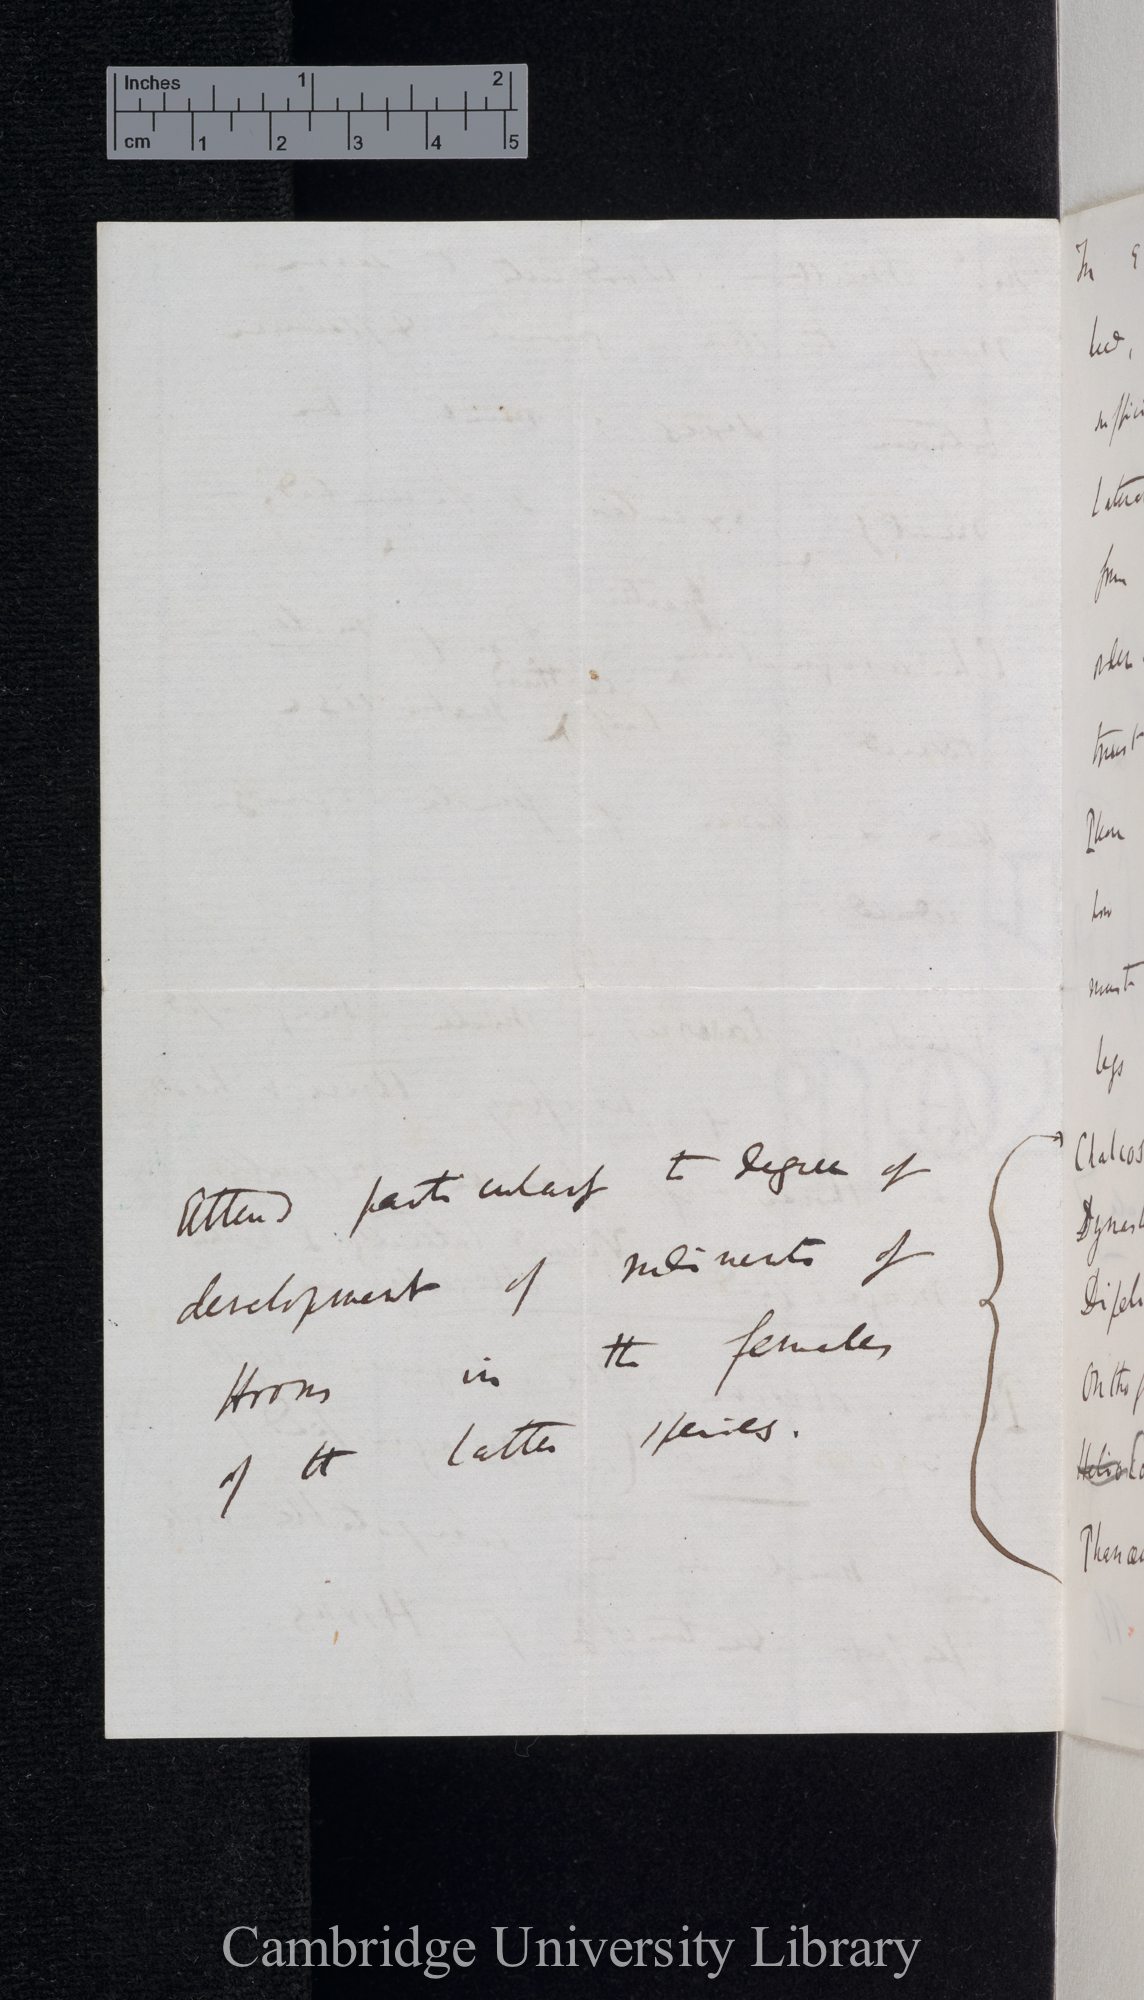 Inches 1 2
cm 1 2 3 4 5
Attend particularly to degree of
development of rudiments of
Horns in the females
of the latter species.
In
led,
suffici
Latera
from
order
trust
how
must
legs
Chalcos
Dynast
Dipel
Onthop
Phanae
Cambridge University Library